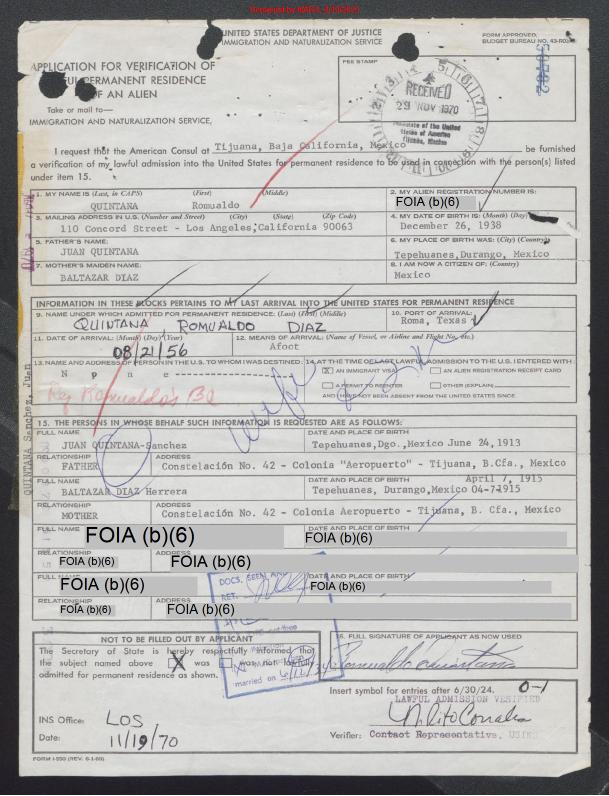 UNITED STATES DEPARTMENT OF JUSTICE
IMMIGRATION AND NATURALIZATION SERVICE
FORM APPROVED
BUDGET BUREAU NO. 43-R0
APPLICATION FOR VERIFICATION OF
PERMANENT RESIDENCE
OF AN ALIEN
FEE STAMP
RECEIVED
29 NOV 1970
of the United
States of America
Tijuana, Mexico
Take or mail to—
IMMIGRATION AND NATURALIZATION SERVICE,
I request that the American Consul at Tijuana, Baja California, Mexico be furnished
a verification of my lawful admission into the United States for permanent residence to be used in connection with the person(s) listed
under item 15.
1. MY NAME IS (Last, in CAPS) (First) (Middle)
QUINTANA Romualdo
2. MY ALIEN REGISTRATION NUMBER IS:
FOIA (b)(6)
3. MAILING ADDRESS IN U.S. (Number and Street) (City) (State) (Zip Code)
110 Concord Street - Los Angeles, California 90063
4. MY DATE OF BIRTH IS: (Month) (Day)
December 26, 1938
5. FATHER'S NAME:
JUAN QUINTANA
6. MY PLACE OF BIRTH WAS: (City) (Country)
Tepehuanes, Durango, Mexico
7. MOTHER'S MAIDEN NAME:
BALTAZAR DIAZ
8. I AM NOW A CITIZEN OF: (Country)
Mexico
INFORMATION IN THESE BLOCKS PERTAINS TO MY LAST ARRIVAL INTO THE UNITED STATES FOR PERMANENT RESIDENCE
9. NAME UNDER WHICH ADMITTED FOR PERMANENT RESIDENCE: (Last) (First) (Middle)
QUINTANA ROMUALDO DIAZ
10. PORT OF ARRIVAL:
Roma, Texas
11. DATE OF ARRIVAL: (Month) (Day) (Year)
08/21/56
12. MEANS OF ARRIVAL: (Name of Vessel, or Airline and Flight No., etc.)
Afoot
13. NAME AND ADDRESS OF PERSON IN THE U.S. TO WHOM I WAS DESTINED:
N o n e
14. AT THE TIME OF LAST LAWFUL ADMISSION TO THE U.S. I ENTERED WITH
X AN IMMIGRANT VISA
AN ALIEN REGISTRATION RECEIPT CARD
A PERMIT TO REENTER
OTHER (EXPLAIN)
AND I HAVE NOT BEEN ABSENT FROM THE UNITED STATES SINCE
Romualdo's BC
wife
15. THE PERSONS IN WHOSE BEHALF SUCH INFORMATION IS REQUESTED ARE AS FOLLOWS:
FULL NAME
JUAN QUINTANA-Sanchez
DATE AND PLACE OF BIRTH
Tepehuanes, Dgo., Mexico June 24, 1913
RELATIONSHIP
FATHER
ADDRESS
Constelación No. 42 - Colonia "Aeropuerto" - Tijuana, B.Cfa., Mexico
FULL NAME
BALTAZAR DIAZ Herrera
DATE AND PLACE OF BIRTH
April 7, 1915
Tepehuanes, Durango, Mexico 04-7-1915
RELATIONSHIP
MOTHER
ADDRESS
Constelación No. 42 - Colonia Aeropuerto - Tijuana, B. Cfa., Mexico
FULL NAME
FOIA (b)(6)
DATE AND PLACE OF BIRTH
FOIA (b)(6)
RELATIONSHIP
FOIA (b)(6)
ADDRESS
FOIA (b)(6)
FULL
FOIA (b)(6)
DATE AND PLACE OF BIRTH
FOIA (b)(6)
RELATIONSHIP
FOIA (b)(6)
ADDRESS
FOIA (b)(6)
QUINTANA Sanchez, Juan
DOCS. SEEN AND
RET.
married on
NOT TO BE FILLED OUT BY APPLICANT
The Secretary of State is hereby respectfully informed that
the subject named above X was was not lawfully
admitted for permanent residence as shown.
16. FULL SIGNATURE OF APPLICANT AS NOW USED
Romualdo Quintana
Insert symbol for entries after 6/30/24. 0-1
LAWFUL ADMISSION VERIFIED
INS Office: LOS
Date: 11/19/70
Verifier: Contact Representative, USINS
FORM I-550 (REV. 6-1-69)